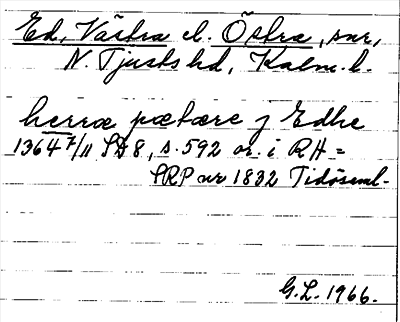 Ed, Västra el. Östra, snr,
N. Tjusts hd, Kalm. l.
herræ pætære j Edhe
1364 7/11 SD 8, s. 592 or. i RH =
SRP nr 1832 Tidösaml.
G.L. 1966.